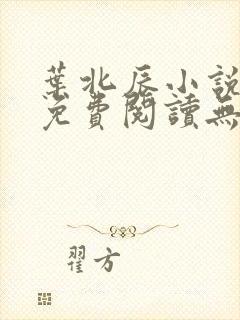 葉北辰小說
免費閱讀無
翟方